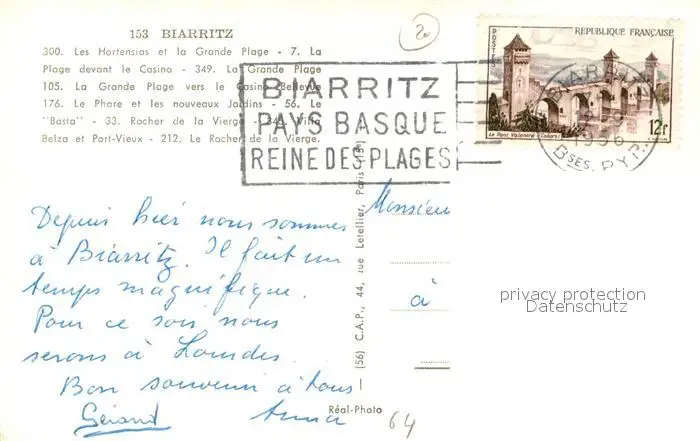 153 BIARRITZ
300. Les Hortensias et la Grande Plage - 7. La
Plage devant le Casino - 349. La Grande Plage
105. La Grande Plage vers le Casino Bellevue
176. Le Phare et les nouveaux Jardins - 56. Le
"Basta" - 33. Rocher de la Vierge - 345. Villa
Belza et Port-Vieux - 212. Le Rocher de la Vierge.
2
BIARRITZ
PAYS BASQUE
REINE DES PLAGES
POSTES
REPUBLIQUE FRANÇAISE
Le Pont Valentré (Cahors)
12f
BIARRITZ
1956
BSES. PYR.
Depuis hier nous sommes
à Biarritz. Il fait un
temps magnifique.
Pour ce soir nous
serons à Lourdes.
Bon souvenir à tous
Gérard Anna
(56) C.A.P., 44, rue Letellier, Paris (15e)
Réal-Photo
64
Monsieur
à
privacy protection
Datenschutz